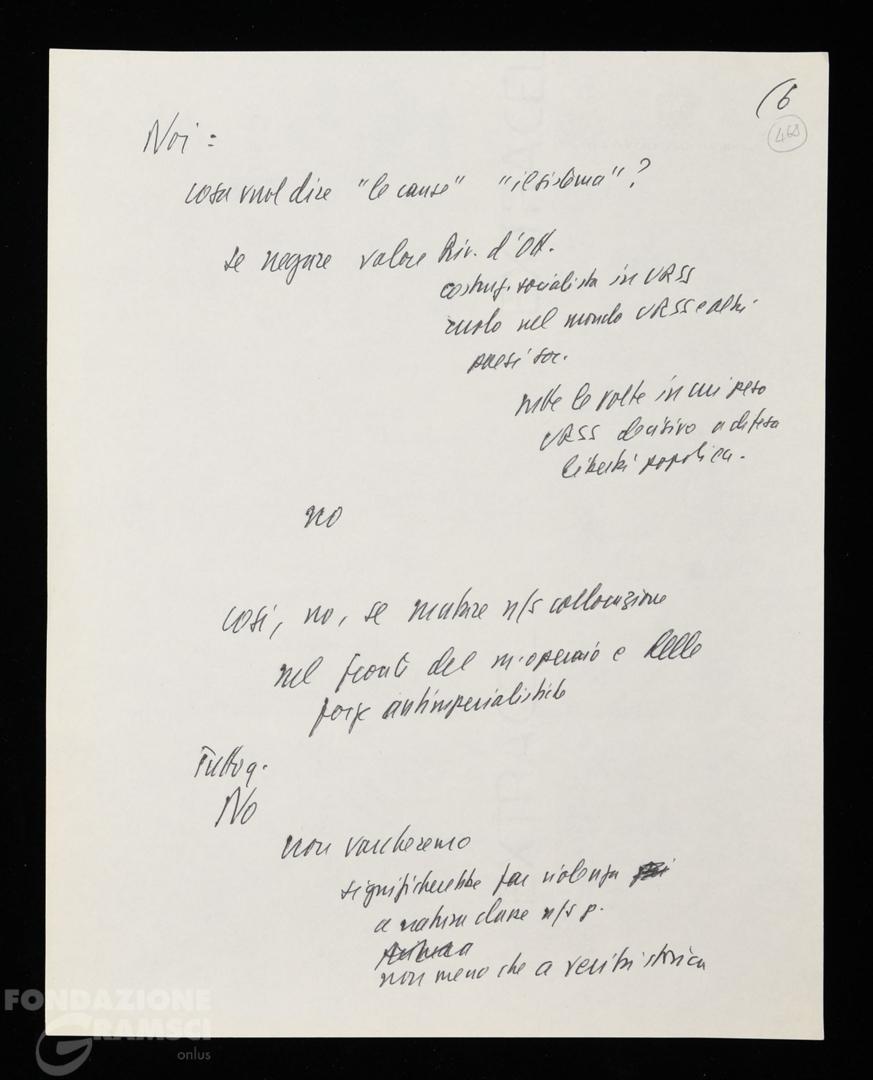 (6
468
Noi :
cosa vuol dire "le cause" "il sistema" ?
se negare valore Riv. d'Ott.
costruz. socialista in URSS
ruolo nel mondo URSS e altri
paesi soc.
tutte le volte in cui peso
URSS decisivo a difesa
libertà popoli ecc.
no
Così, no, se mutare n/s collocazione
nel fronte del m. operaio e delle
forze antimperialistiche
Tutto q.
No
non varcheremo
significherebbe far violenza
a natura classe n/s p.
non meno che a verità storica
FONDAZIONE
GRAMSCI
onlus